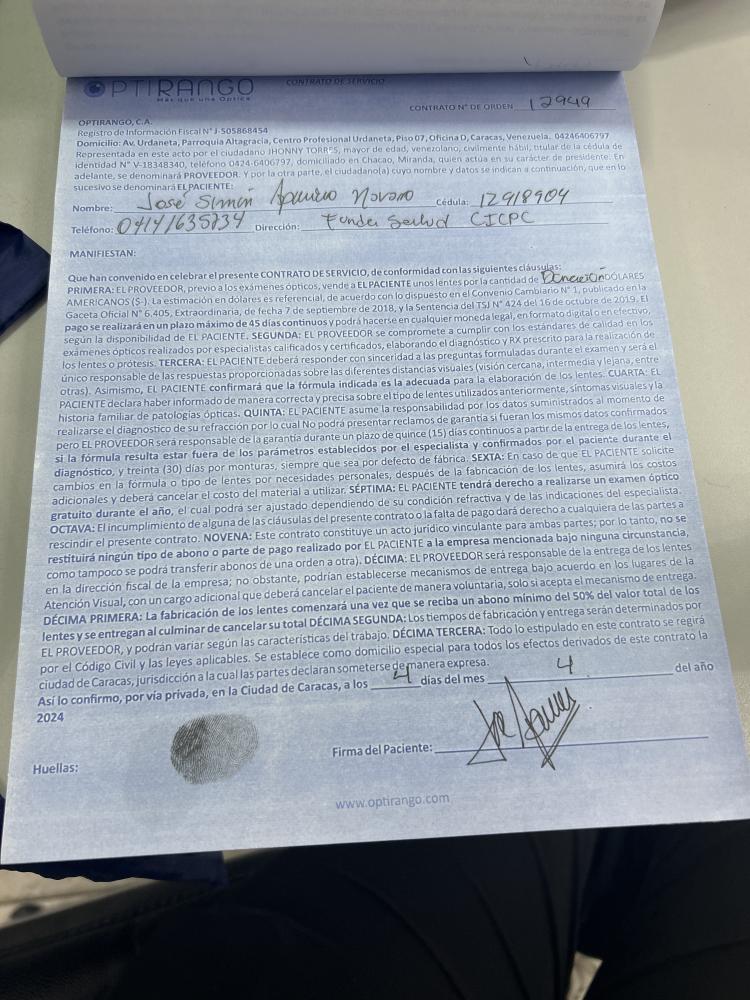 OPTIRANGO
Más que una Óptica
CONTRATO DE SERVICIO
CONTRATO N° DE ORDEN 12949
OPTIRANGO, C.A.
Registro de Información Fiscal N° J-505868454
Domicilio: Av, Urdaneta, Parroquia Altagracia, Centro Profesional Urdaneta, Piso 07, Oficina D, Caracas, Venezuela. 04246406797
Representada en este acto por el ciudadano JHONNY TORRES, mayor de edad, venezolano, civilmente hábil, titular de la cédula de
identidad N° V-18348340, teléfono 0424-6406797, domiciliado en Chacao, Miranda, quien actúa en su carácter de presidente. En
adelante, se denominará PROVEEDOR. Y por la otra parte, el ciudadano(a) cuyo nombre y datos se indican a continuación, que en lo
sucesivo se denominará EL PACIENTE:
Nombre: José Simón Aparicio Cédula: 12918904
Teléfono: 04141635734 Dirección: Funda Salud CICPC
MANIFIESTAN:
Que han convenido en celebrar el presente CONTRATO DE SERVICIO, de conformidad con las siguientes cláusulas:
PRIMERA: EL PROVEEDOR, previo a los exámenes ópticos, vende a EL PACIENTE unos lentes por la cantidad de Donación DÓLARES
AMERICANOS ($-). La estimación en dólares es referencial, de acuerdo con lo dispuesto en el Convenio Cambiario N° 1, publicado en la
Gaceta Oficial N° 6.405, Extraordinaria, de fecha 7 de septiembre de 2018, y la Sentencia del TSJ N° 424 del 16 de octubre de 2019. El
pago se realizará en un plazo máximo de 45 días continuos y podrá hacerse en cualquier moneda legal, en formato digital o en efectivo,
según la disponibilidad de EL PACIENTE. SEGUNDA: EL PROVEEDOR se compromete a cumplir con los estándares de calidad en los
exámenes ópticos realizados por especialistas calificados y certificados, elaborando el diagnóstico y RX prescrito para la realización de
los lentes o prótesis. TERCERA: EL PACIENTE deberá responder con sinceridad a las preguntas formuladas durante el examen y será el
único responsable de las respuestas proporcionadas sobre las diferentes distancias visuales (visión cercana, intermedia y lejana, entre
otras). Asimismo, EL PACIENTE confirmará que la fórmula indicada es la adecuada para la elaboración de los lentes. CUARTA: EL
PACIENTE declara haber informado de manera correcta y precisa sobre el tipo de lentes utilizados anteriormente, síntomas visuales y la
historia familiar de patologías ópticas. QUINTA: EL PACIENTE asume la responsabilidad por los datos suministrados al momento de
realizarse el diagnostico de su refracción por lo cual No podrá presentar reclamos de garantía si fueran los mismos datos confirmados
pero EL PROVEEDOR será responsable de la garantía durante un plazo de quince (15) días continuos a partir de la entrega de los lentes,
si la fórmula resulta estar fuera de los parámetros establecidos por el especialista y confirmados por el paciente durante el
diagnóstico, y treinta (30) días por monturas, siempre que sea por defecto de fábrica. SEXTA: En caso de que EL PACIENTE solicite
cambios en la fórmula o tipo de lentes por necesidades personales, después de la fabricación de los lentes, asumirá los costos
adicionales y deberá cancelar el costo del material a utilizar. SÉPTIMA: EL PACIENTE tendrá derecho a realizarse un examen óptico
gratuito durante el año, el cual podrá ser ajustado dependiendo de su condición refractiva y de las indicaciones del especialista.
OCTAVA: El incumplimiento de alguna de las cláusulas del presente contrato o la falta de pago dará derecho a cualquiera de las partes a
rescindir el presente contrato. NOVENA: Este contrato constituye un acto jurídico vinculante para ambas partes; por lo tanto, no se
restituirá ningún tipo de abono o parte de pago realizado por EL PACIENTE a la empresa mencionada bajo ninguna circunstancia,
como tampoco se podrá transferir abonos de una orden a otra). DÉCIMA: EL PROVEEDOR será responsable de la entrega de los lentes
en la dirección fiscal de la empresa; no obstante, podrían establecerse mecanismos de entrega bajo acuerdo en los lugares de la
Atención Visual, con un cargo adicional que deberá cancelar el paciente de manera voluntaria, solo si acepta el mecanismo de entrega.
DÉCIMA PRIMERA: La fabricación de los lentes comenzará una vez que se reciba un abono mínimo del 50% del valor total de los
lentes y se entregan al culminar de cancelar su total DÉCIMA SEGUNDA: Los tiempos de fabricación y entrega serán determinados por
EL PROVEEDOR, y podrán variar según las características del trabajo. DÉCIMA TERCERA: Todo lo estipulado en este contrato se regirá
por el Código Civil y las leyes aplicables. Se establece como domicilio especial para todos los efectos derivados de este contrato la
ciudad de Caracas, jurisdicción a la cual las partes declaran someterse de manera expresa.
Así lo confirmo, por vía privada, en la Ciudad de Caracas, a los 4 días del mes 4 del año
2024
Huellas:
Firma del Paciente:
www.optirango.com